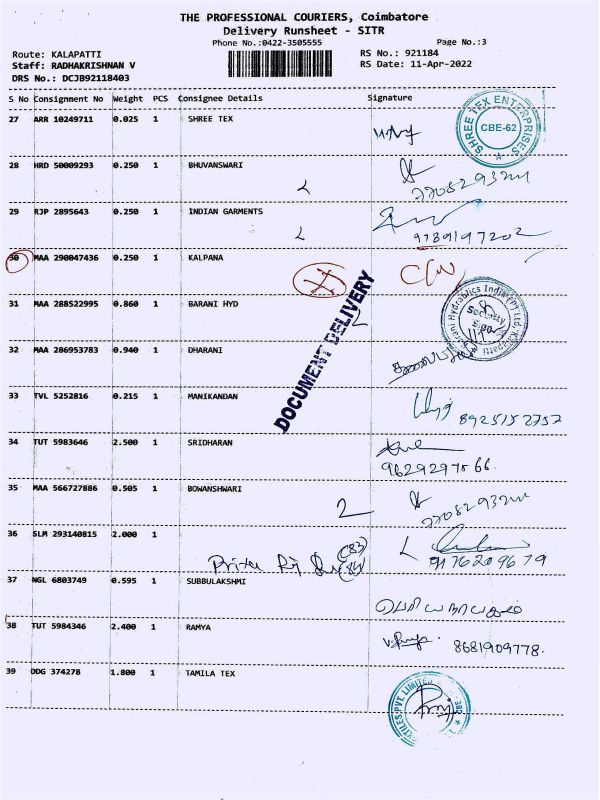 THE PROFESSIONAL COURIERS, Coimbatore
Delivery Runsheet - SITR
Phone No.:0422-3505555 Page No.:3
Route: KALAPATTI RS No.: 921184
Staff: RADHAKRISHNAN V RS Date: 11-Apr-2022
DRS No.: DCJB92118403
S No Consignment No Weight PCS Consignee Details Signature
27 ARR 10249711 0.025 1 SHREE TEX
SHREE TEX ENTERPRISES
CBE-62
28 HRD 50009293 0.250 1 BHUVANSWARI
29 RJP 2895643 0.250 1 INDIAN GARMENTS
9789197202
30 MAA 290047436 0.250 1 KALPANA
31 MAA 288522995 0.860 1 BARANI HYD
DOCUMENT DELIVERY
Security
32 MAA 286953783 0.940 1 DHARANI
33 TVL 5252816 0.215 1 MANIKANDAN
8925152757
34 TUT 5983646 2.500 1 SRIDHARAN
35 MAA 566727886 0.505 1 BOWANSHWARI
2
36 SLM 293140815 2.000 1
9176209679
37 NGL 6803749 0.595 1 SUBBULAKSHMI
38 TUT 5984346 2.400 1 RAMYA
8681909778.
39 DDG 374278 1.800 1 TAMILA TEX